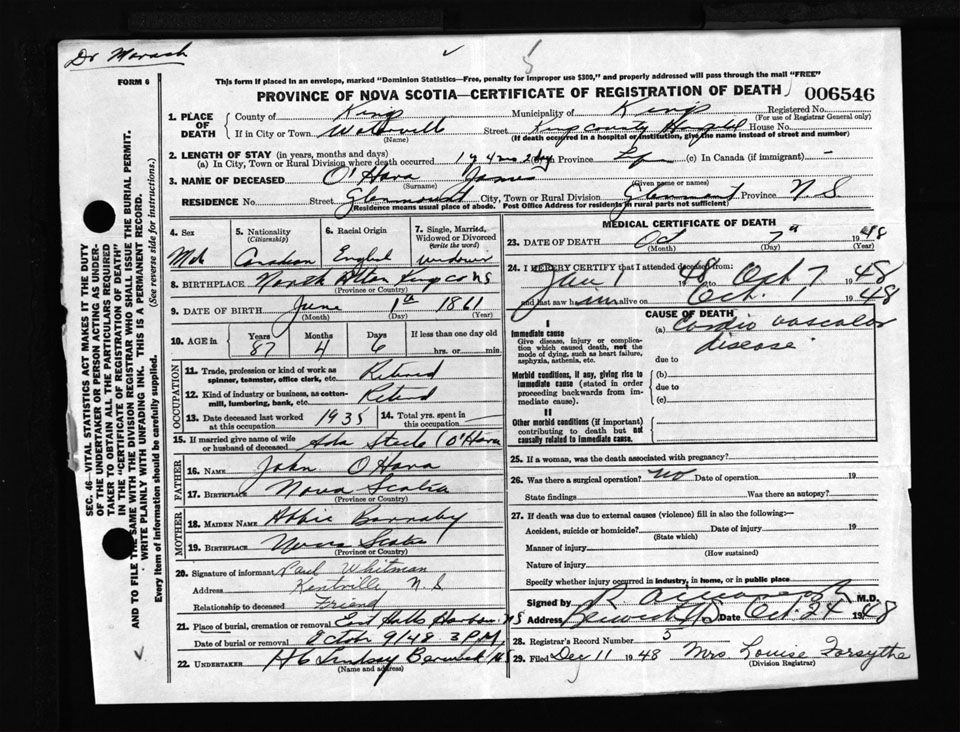 Dr Marach
FORM 6
This form if placed in an envelope, marked "Dominion Statistics—Free, penalty for improper use $300," and properly addressed will pass through the mail "FREE"
PROVINCE OF NOVA SCOTIA—CERTIFICATE OF REGISTRATION OF DEATH
006546
1. PLACE OF DEATH
County of Kings Municipality of Kings Registered No.
(For use of Registrar General only)
If in City or Town Wolfville Street Hospital House No.
(Name) (If death occurred in a hospital or institution, give the name instead of street and number)
2. LENGTH OF STAY (in years, months and days)
(a) In City, Town or Rural Division where death occurred (b) In Province (c) In Canada (if immigrant) -
3. NAME OF DECEASED O'Hara James
(Surname) (Given name or names)
RESIDENCE No. Street Glenmont City, Town or Rural Division Glenmont Province N. S.
(Residence means usual place of abode. Post Office Address for residents in rural parts not sufficient)
4. Sex 5. Nationality (Citizenship) 6. Racial Origin 7. Single, Married, Widowed or Divorced (Write the word)
Canadian English widower
8. BIRTHPLACE North Alton Kings co NS
(Province or Country)
9. DATE OF BIRTH June 1th 1861
(Month) (Day) (Year)
10. AGE in Years Months Days If less than one day old
87 4 6 hrs. or min.
OCCUPATION
11. Trade, profession or kind of work as spinner, teamster, office clerk, etc. Retired
12. Kind of industry or business, as cotton-mill, lumbering, bank, etc. Retired
13. Date deceased last worked at this occupation 1935 14. Total yrs. spent in this occupation
15. If married give name of wife or husband of deceased Ada Steele (O'Hara
FATHER
16. NAME John O'Hara
17. BIRTHPLACE Nova Scotia
(Province or Country)
MOTHER
18. MAIDEN NAME Abbie Barnaby
19. BIRTHPLACE Nova Scotia
(Province or Country)
20. Signature of informant Paul Whitman
Address Kentville N. S
Relationship to deceased Friend
21. Place of burial, cremation or removal East Halls Harbour NS
Date of burial or removal Octor 9/48 3 P.M.
22. UNDERTAKER Lindsay Berwick NS
(Name and address)
MEDICAL CERTIFICATE OF DEATH
23. DATE OF DEATH Oct 7th 1948
(Month) (Day) (Year)
24. I HEREBY CERTIFY that I attended deceased from
Jan 1 1948 Oct 7 1948
and last saw him alive on Oct. 1 1948
CAUSE OF DEATH
I
Immediate cause
Give disease, injury or complication which caused death, not the mode of dying, such as heart failure, asphyxia, asthenia, etc.
(a) Cardio vascular
disease
due to
Morbid conditions, if any, giving rise to immediate cause (stated in order proceeding backwards from immediate cause).
(b)
due to
(c)
II
Other morbid conditions (if important) contributing to death but not causally related to immediate cause.
25. If a woman, was the death associated with pregnancy?
26. Was there a surgical operation? no Date of operation 19
State findings Was there an autopsy?
27. If death was due to external causes (violence) fill in also the following:-
Accident, suicide or homicide? Date of injury 19
(State which)
Manner of injury
(How sustained)
Nature of injury
Specify whether injury occurred in industry, in home, or in public place
Signed by M.D.
Address Berwick NS Date Oct 24 1948
28. Registrar's Record Number 5
29. Filed Dec 11 1948 Mrs. Louise Forsythe
(Division Registrar)
SEC. 46—VITAL STATISTICS ACT MAKES IT THE DUTY
OF THE UNDERTAKER OR PERSON ACTING AS UNDER-
TAKER TO OBTAIN ALL THE PARTICULARS REQUIRED
IN THE "CERTIFICATE OF REGISTRATION OF DEATH"
AND TO FILE THE SAME WITH THE DIVISION REGISTRAR WHO SHALL ISSUE THE BURIAL PERMIT.
WRITE PLAINLY WITH UNFADING INK. THIS IS A PERMANENT RECORD.
Every item of information should be carefully supplied. (See reverse side for instructions.)